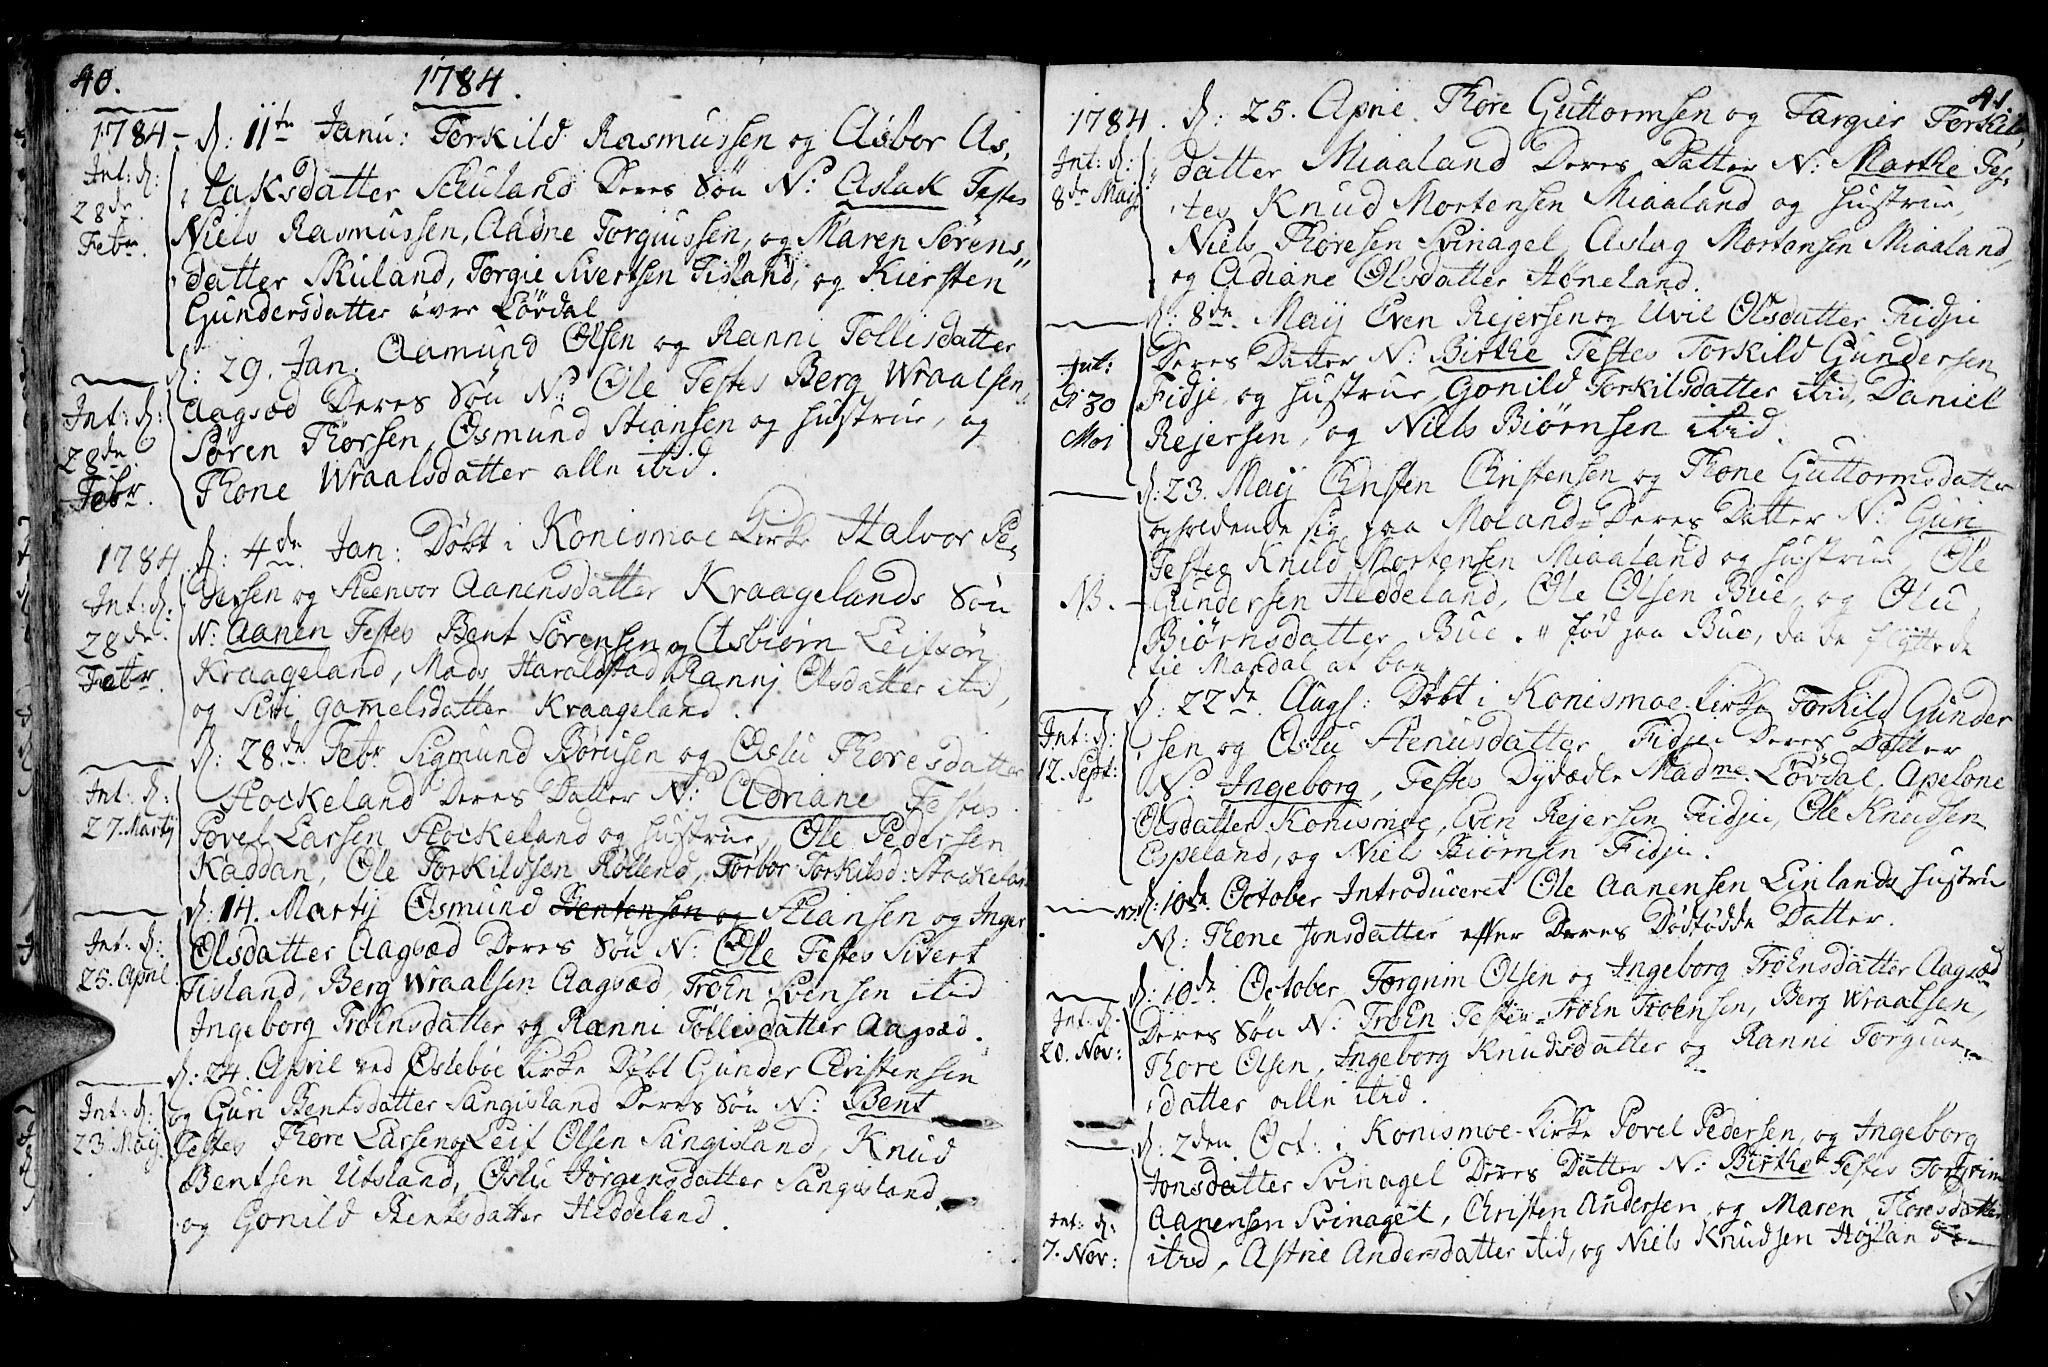 40. 1784.
1784 - d: 11te Janu: Torkild Rasmussen og Asbor As,
Int: d: laksdatter Schuland Deres Søn N: Aslak Testes
28de Febr. Niels Rasmussen, Aadne Torguissen, og Maren Sørens,,
datter Skuland, Torgie Sivertsen Tisland, og Kiersten
Gundersdatter øvre Løvdal
d: 29. Jan. Aamund Olsen og Ranni Tollisdatter
Int: d: Aagsæd Deres Søn N: Ole Testes Berg Wraalsen,
28de Febr. Søren Thorsen, Osmund Stiansen og Hustrue, og
Thone Wraalsdatter alle ibid.
1784. d: 4de Jan: Døbt i Konismoe Kirke Halvor Pe,
Int: d: dersen og Steenvor Aanensdatter Kraagelands Søn
28de N: Aanen Testes Bent Sørensen og Asbiørn Leifsøn
Febr. Kraageland, Mads Haraldstad, Rannj Olsdatter ibid,
og Siri gamelsdatter Kraageland.
d: 28de Febr Sigmund Børusen og Oslu Thoresdatter
Int: d: Stockeland Deres Datter N: Adriane Testes
27. Martij Povel Larsen Stockeland og Hustrue, Ole Pedersen
Kaddan, Ole Torkildssen Rolland, Torbor Torkilsd: Stockeland
d: 14. Martij Osmund Bentsensen og Stiansen og Inger
Int: d: Olsdatter Aagsæd Deres Søn N: Ole Testes Sivert
25. April Tisland, Berg Wraalsen Aagsæd, Troen Svensen ibid
Ingeborg Troensdatter og Ranni Tollisdatter Aagsæd.
d: 24. April ved Øslebøe Kirke Døbt Gunder Christensen
Int: d: og Guri Bentsdatter Sangisland Deres Søn N: Bent
23. Maij. Testes Thore Larsen og Leif Olsen Sangisland, Knud
Bentsen Utsland, Oslu Jørgensdatter Sangisland,
og Gonild Bentsdatter Heddeland.
41.
1784. d: 25. April Thore Guttormsen og Targier Torkils
Int: d: datter Miaaland Deres Datter N: Marthe Tes,
8de Maij tes Knud Mortensen Miaaland og Hustrue,
Niels Thoresen Svinagel, Aslag Mortensen Miaaland,
og Adriane Olsdatter Høneland.
d: 8de Maij Even Rejersen og Uvil Olsdatter Fidji
Int: Deres Datter N: Birthe Testes Torkild Gundersen
d 30 Fidje, og Hustrue, Gonild Torkilsdatter ibid, Daniel
Mai Rejersen, og Niels Biørnsen ibid.
d: 23. Maij Christen Christensen og Thone Guttormsdatter
opholdende sig paa Moland Deres Datter N: Guri
Testes Knud Mortensen Miaaland og Hustrue, Ole
NB. - Gundersen Heddeland, Ole Olsen Bue, og Olu
Biørnsdatter Bue. " fød paa Bue, da de flyttede
til Mandal at boe
d: 22de Augs: Døbt i Konismoe Kirke Torkild Gunder
Int: d: sen og Oslu Stenusdatter Fidje Deres Datter
12. Sept: N: Ingeborg, Testes Dydædle Madme Løvdal, Apelone
Olsdatter Konismoe, Even Rejersen Fidje, Ole Knudsen
Espeland, og Niels Biørnsen Fidje.
d: 10de October Introduceret Ole Aanensen Linlands Hustrue
N: Thone Jonsdatter efter Deres Dødfødde Datter.
d: 10de October Torgrim Olsen og Ingeborg Troensdatter Aagsæd
Int: d: Deres Søn N: Troen Testes Troen Troensen, Berg Wraalsen,
20. Nov: Thore Olsen, Ingeborg Knudsdatter og Ranni Torgius
datter alle ibid.
d: 2den Oct: i Konismoe Kirke Povel Pedersen, og Ingeborg
Jonsdatter Svinagel Deres Datter N: Birthe Testes Torgrim
Int: d: Aanensen Svinagel, Christen Andersen, og Maren Thoresdatter
7. Nov: ibid, Astrie Andersdatter ibid, og Niels Knudsen